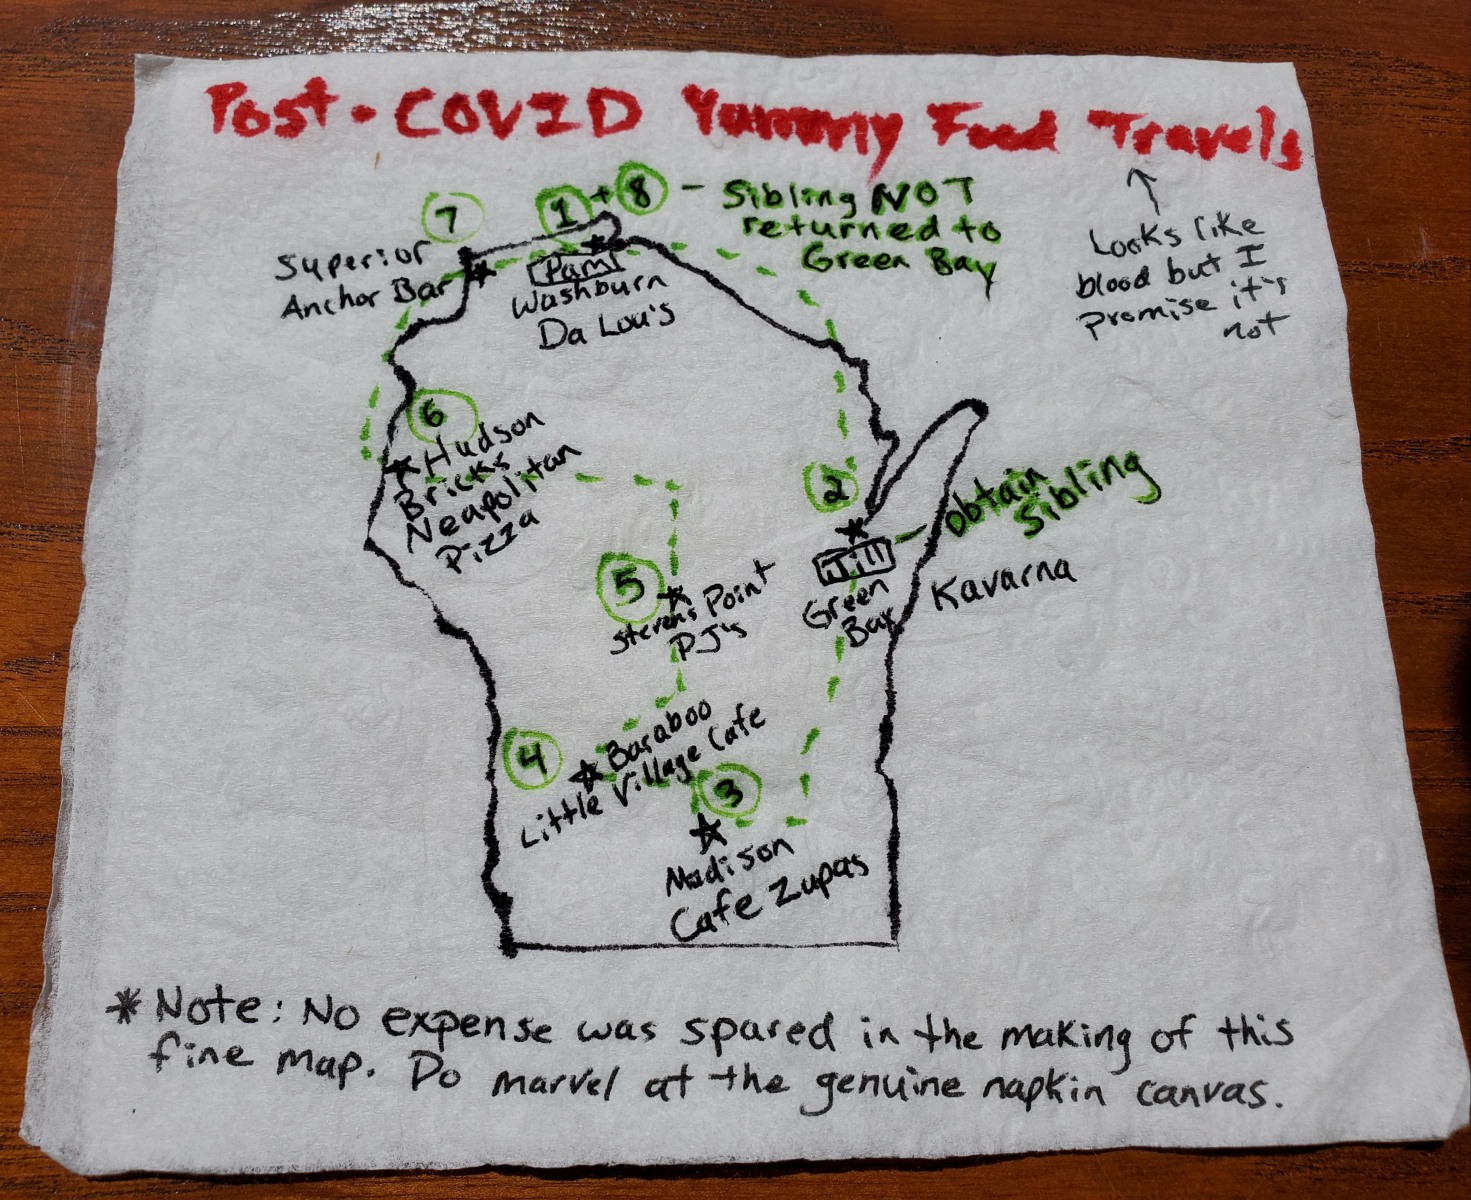 Post-COVID Yummy Food Travels
Looks like
blood but I
promise it's
not
7
1 + 8 - Sibling NOT
returned to
Green Bay
Superior
Anchor Bar
Pam
Washburn
Da Lou's
6
Hudson
Bricks
Neapolitan
Pizza
2
obtain
Sibling
Jill
Green
Bay
Kavarna
5
Stevens Point
PJ's
4
Baraboo
Little Village Cafe
3
Madison
Cafe Zupas
*Note: No expense was spared in the making of this
fine map. Do marvel at the genuine napkin canvas.